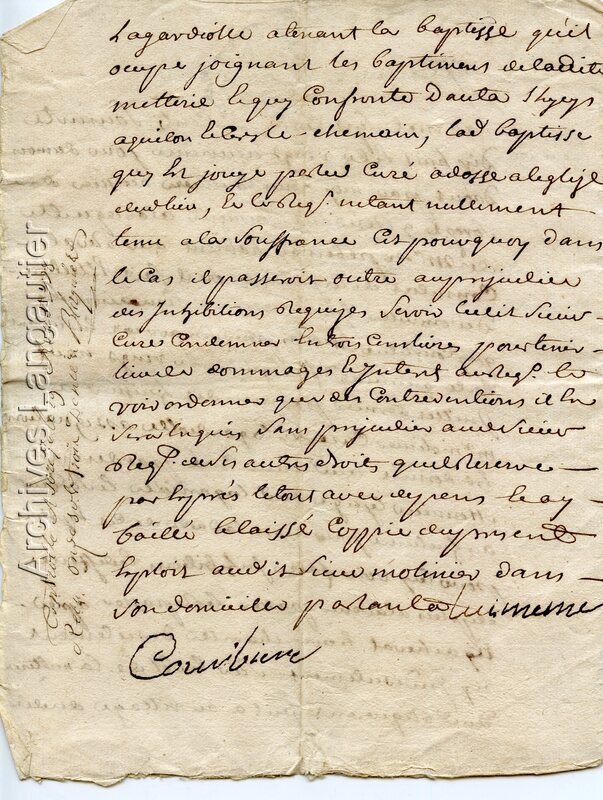 Lagardiolle atenant la baptisse qu'il
occupe joignant les baptimens de ladite
metterie lequy Confronte dauta
aquilon le Cers le chemain, lad baptisse
quy est jouye par led Curé adossé a leglise
dud lieu, Et le Reqt. netant nullement
tenu a la souffrance Cet pourquoy dans
le Cas il passeroit outre au prejudice
des Inhibitions Requizes se voir ledit sieur
Curé Condemner En trois Cens livres pour tenir
lieu de dommages & Interets au Reqt. Et
voir ordonner que des Contreventions il En
sera Enquis sans prejudice aud sieur
Reqt. de ses autres droits quil Reserve
par Exprés le tout avec depens Je ay
baillé & laissé Coppie du present
Exploit audit sieur molinier dans
son domicille parlant a lui meme
Courbiere
Archives Langautier